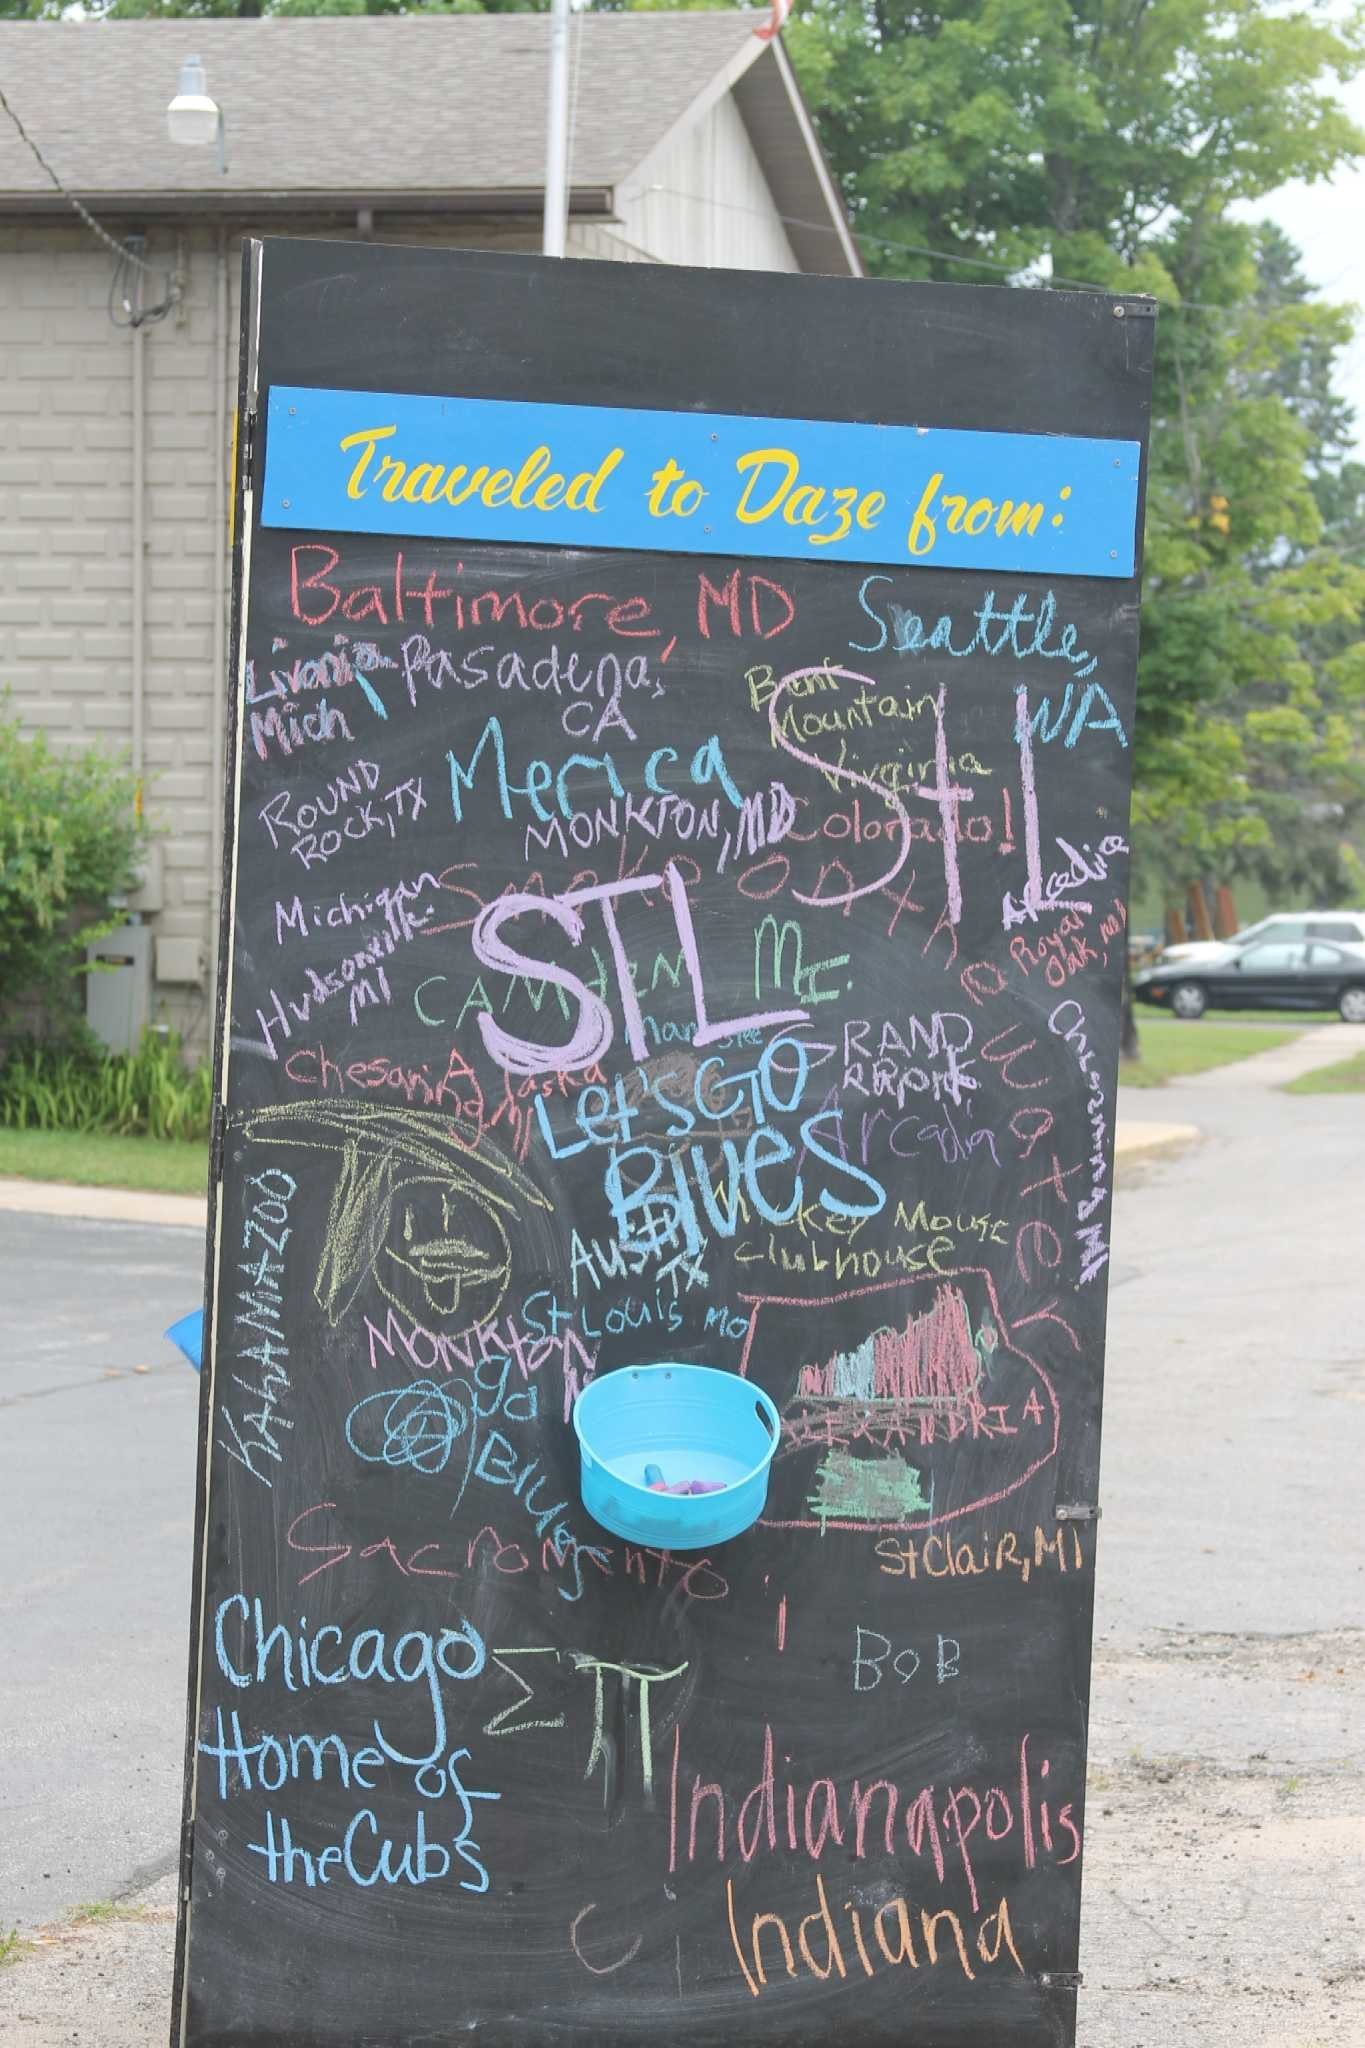 Traveled to Daze from:
Baltimore, MD
Seattle,
WA
Livonia,
Mich
Pasadena,
CA
Brent
Mountain
Virginia
STL
Merica
ROUND
ROCK, TX
MONKTON, MD
Colorado!
Smoke on ta
Da Water
Michigan
Hudsonville
MI
STL
CAMDEN, MI.
Royal
Oak,
Manistee
GRAND
RAPIDS
Chesaning, MI
Alaska
Let's GO
Blues
Arcadia
Chesaning MI
KAHAMAZOO
Mickey Mouse
Clubhouse
Austin
TX
St Louis MO
MONKton
go
Blues
ALEXANDRIA
Sacromento
St Clair, MI
Chicago
Home of
the Cubs
Σ π
BOB
Indianapolis
Indiana
C